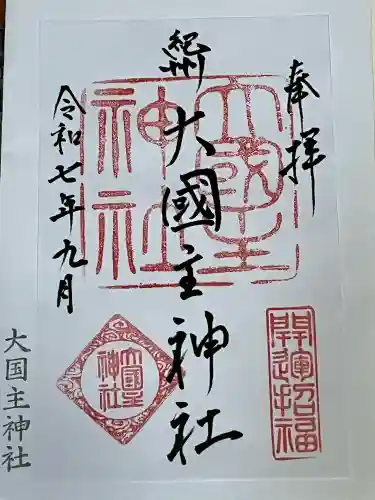 奉拝
紀州
大國主神社
令和七年九月
大國主神社
開運招福
大国主神社
大国主神社